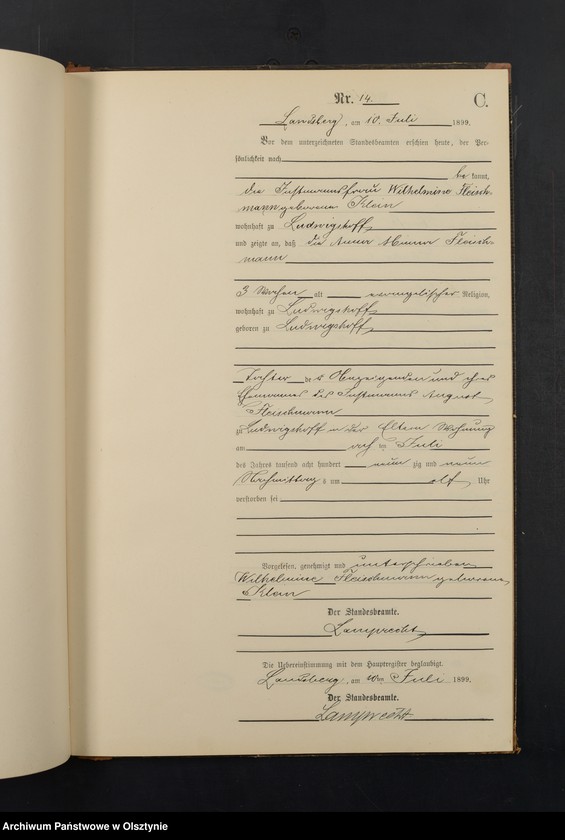 Nr. 14. C.
Landsberg, am 10. Juli 1899.
Vor dem unterzeichneten Standesbeamten erschien heute, der Per-
sönlichkeit nach
be kannt,
die Instmannsfrau Wilhelmine Fleisch-
mann geborene Klein
wohnhaft zu Ludwigshoff,
und zeigte an, daß die Anna Minna Fleisch-
mann
3 Wochen alt evangelischer Religion,
wohnhaft zu Ludwigshoff,
geboren zu Ludwigshoff,
Tochter der Anzeigenden und ihres
Ehemannes des Instmanns August
Fleischmann
zu Ludwigshoff in der Eltern Wohnung
am ten Juli
des Jahres tausend acht hundert neun zig und neun
Nachmittag s um elf Uhr
verstorben sei
Vorgelesen, genehmigt und unterschrieben
Wilhelmine Fleischmann geborene
Klein
Der Standesbeamte.
Lamprecht
Die Uebereinstimmung mit dem Hauptregister beglaubigt.
Landsberg, am 10ten Juli 1899.
Der Standesbeamte.
Lamprecht
Archiwum Państwowe w Olsztynie